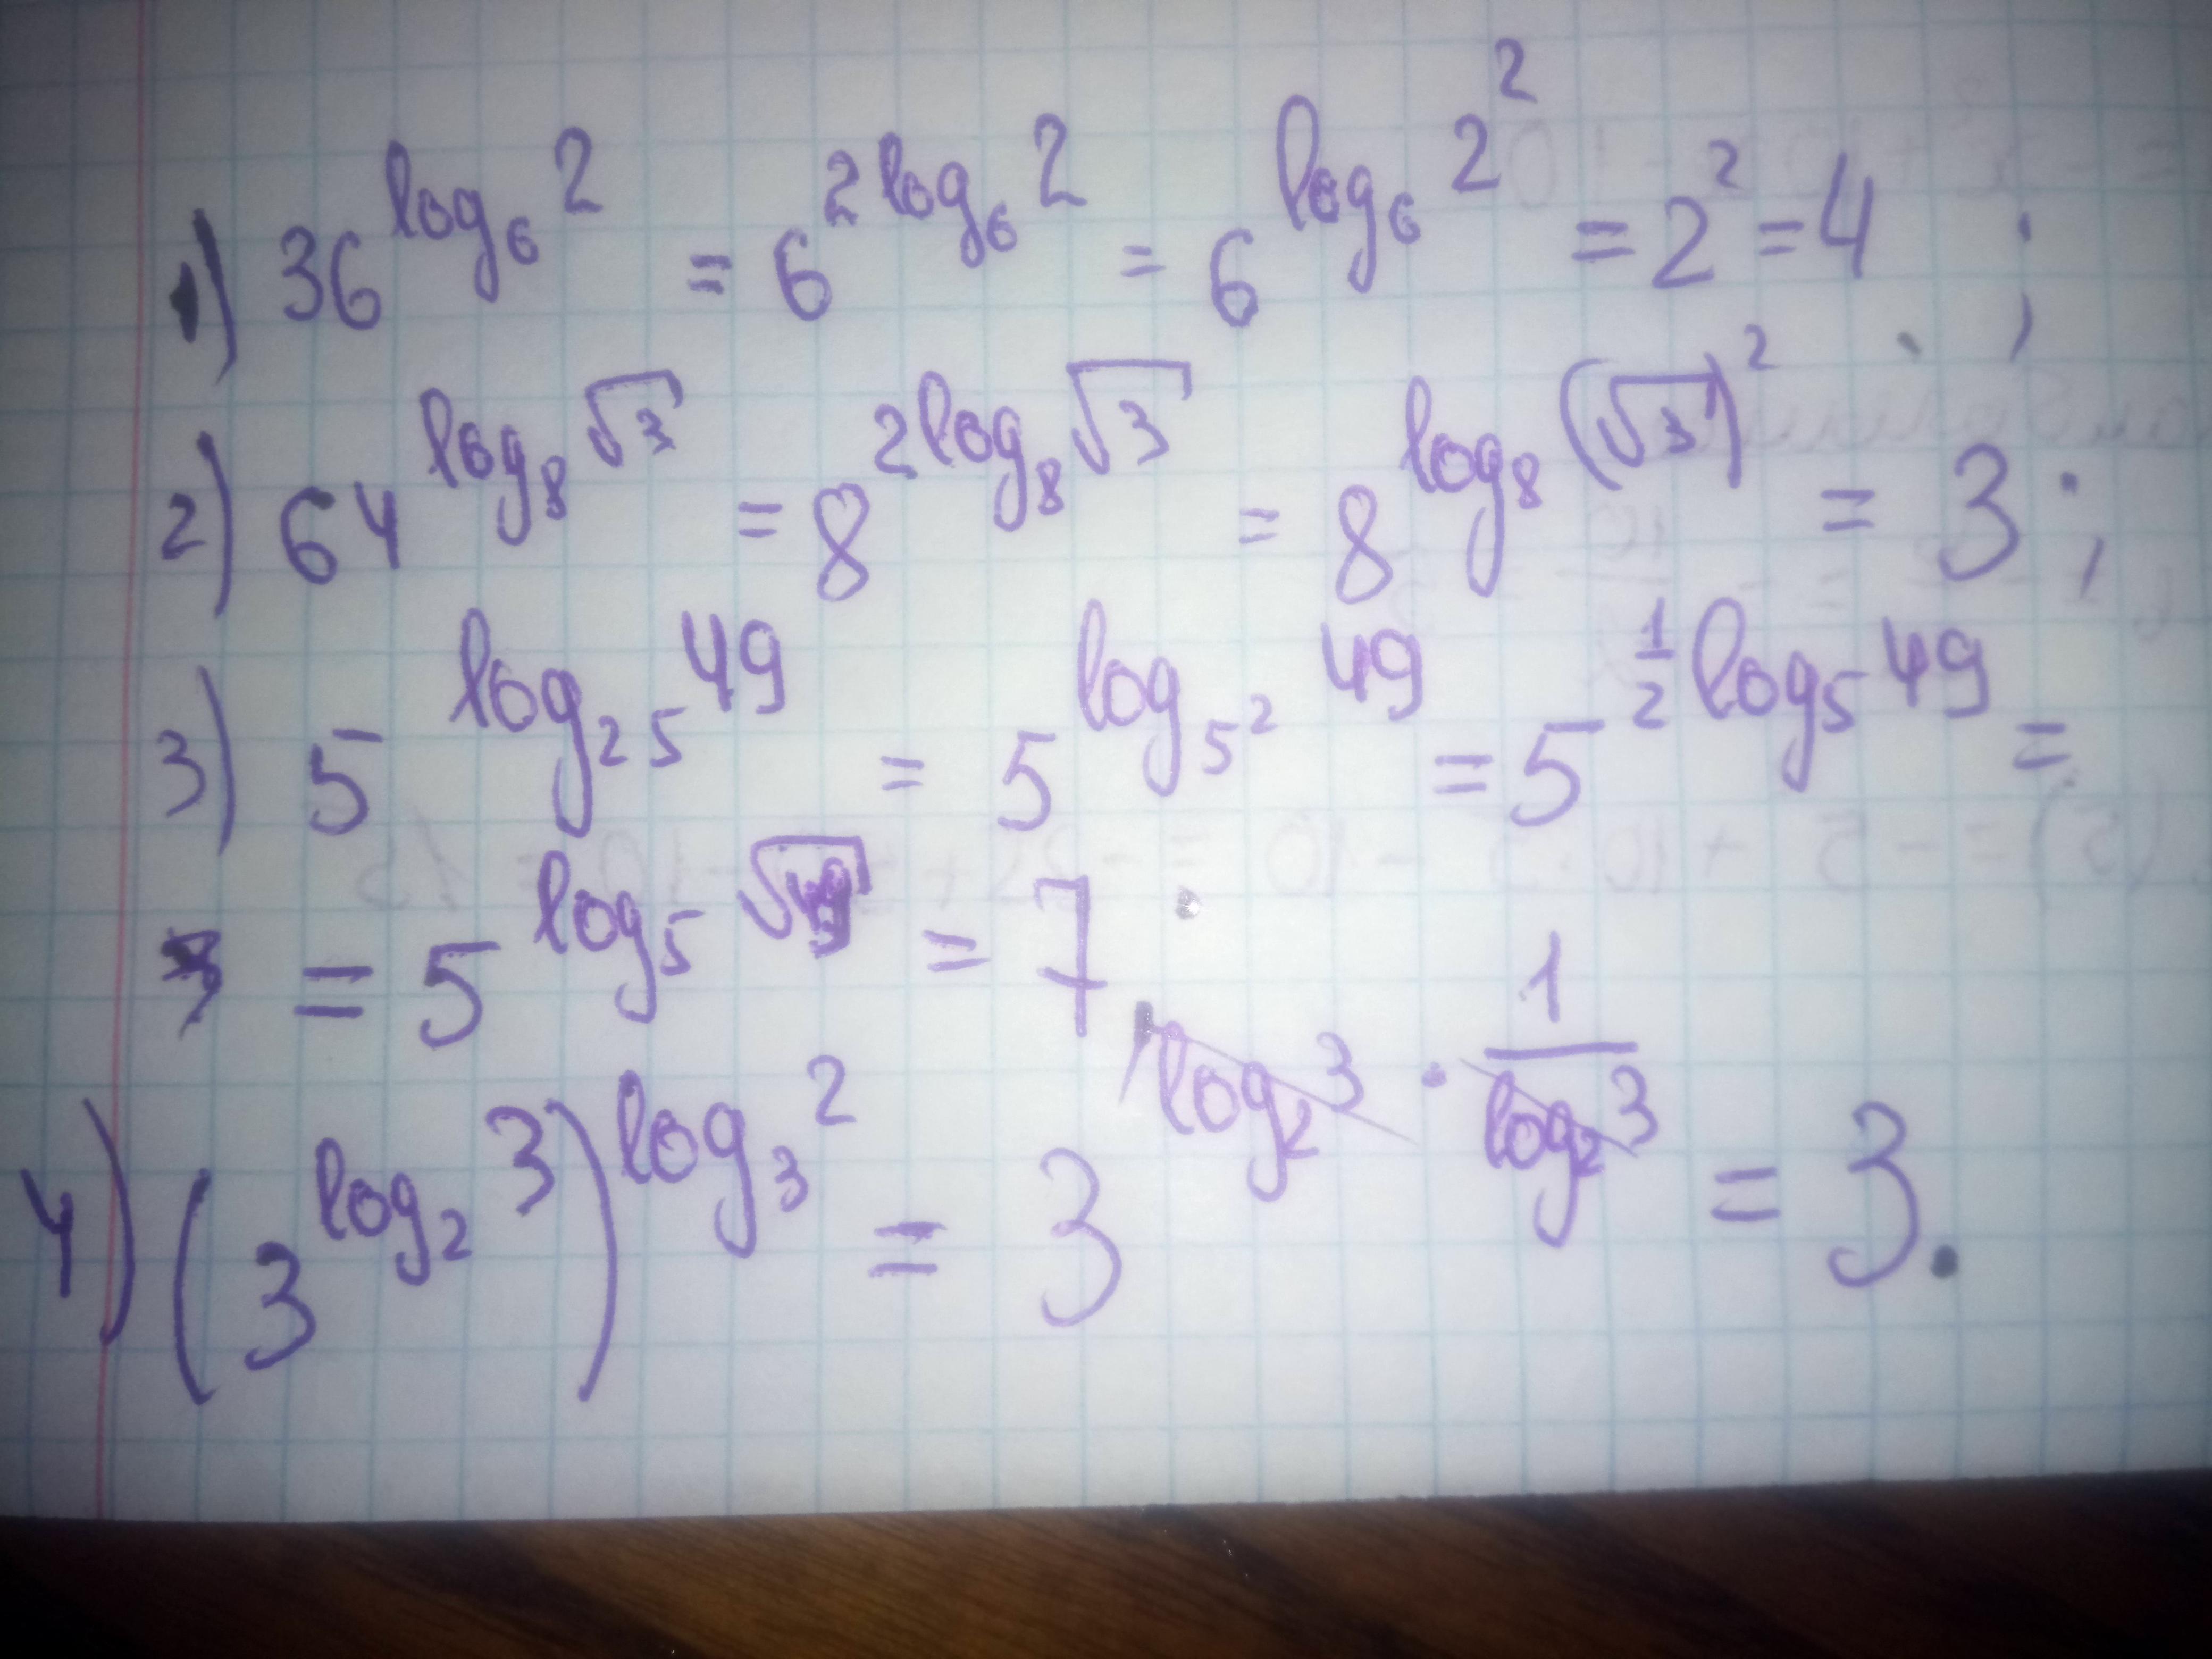 1) 36^{log_6 2} = 6^{2 log_6 2} = 6^{log_6 2^2} = 2^2 = 4 ;
2) 64^{log_8 √3} = 8^{2 log_8 √3} = 8^{log_8 (√3)^2} = 3 ;
3) 5^{log_{25} 49} = 5^{log_{5^2} 49} = 5^{\frac{1}{2} log_5 49} =
= 5^{log_5 √49} = 7
4) (3^{log_2 3})^{log_3 2} = 3^{log_2 3 · \frac{1}{log_2 3}} = 3.